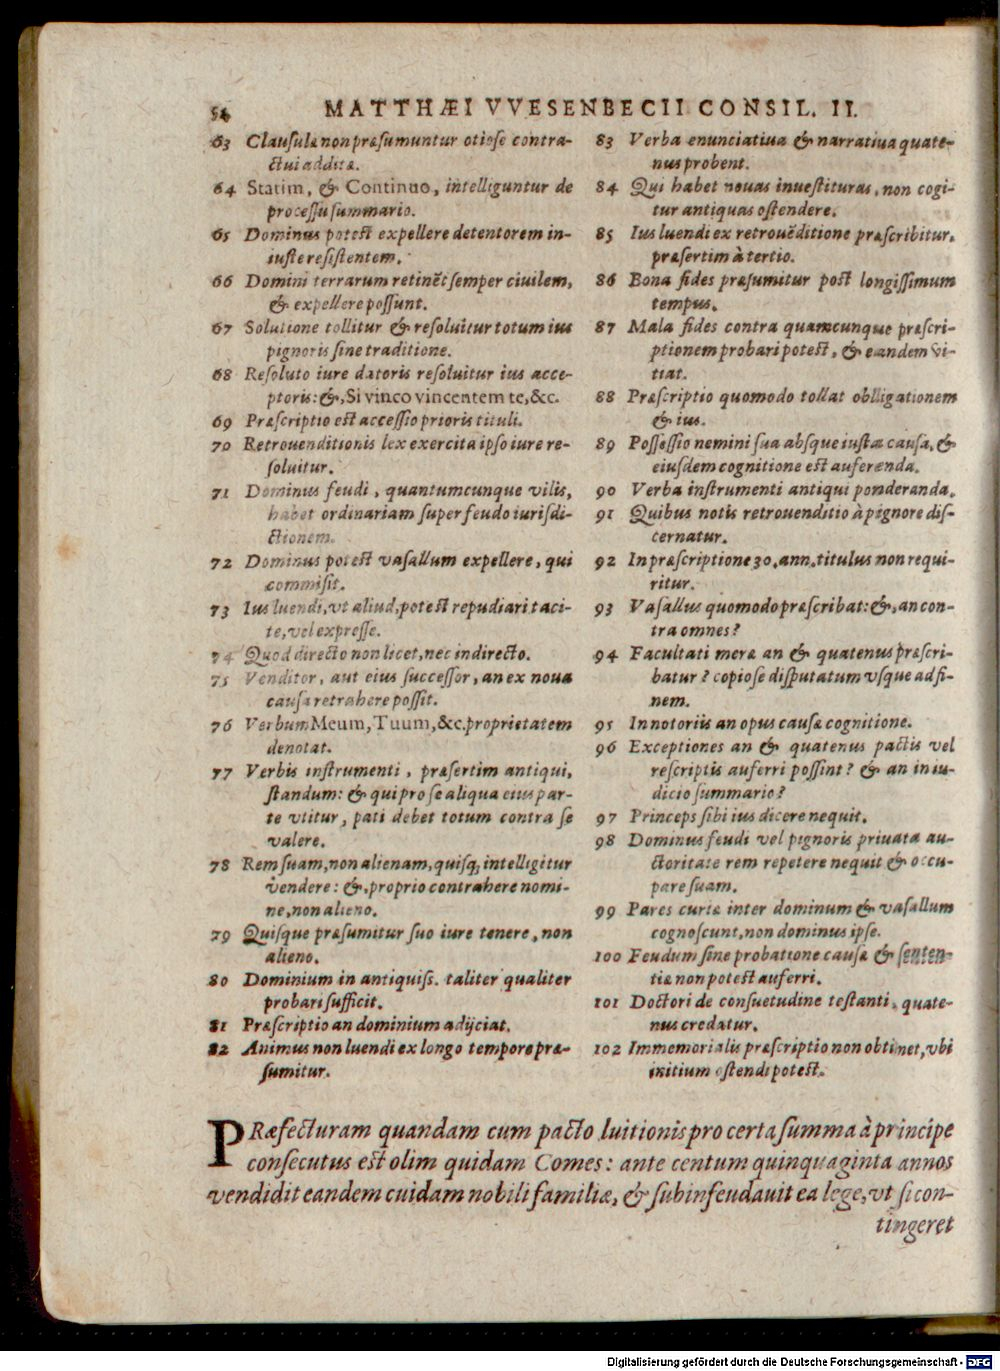 54 MATTHÆI VVESENBECII CONSIL. II.
63 Clausulæ non præsumuntur otiose contra-
ctui additæ.
64 Statim, & Continuo, intelliguntur de
processu summario.
65 Dominus potest expellere detentorem in-
iuste resistentem.
66 Domini terrarum retinēt semper ciuilem,
& expellere possunt.
67 Solutione tollitur & resoluitur totum ius
pignoris sine traditione.
68 Resoluto iure datoris resoluitur ius acce-
ptoris: &, Si vinco vincentem te, &c.
69 Præscriptio est accessio prioris tituli.
70 Retrouenditionis lex exercita ipso iure re-
soluitur.
71 Dominus feudi, quantumcunque vilis,
habet ordinariam super feudo iurisdi-
ctionem.
72 Dominus potest vasallum expellere, qui
commisit.
73 Ius luendi, vt aliud, potest repudiari taci-
te, vel expresse.
74 Quod directo non licet, nec indirecto.
75 Venditor, aut eius successor, an ex noua
causa retrahere possit.
76 Verbum Meum, Tuum, &c. proprietatem
denotat.
77 Verbis instrumenti, præsertim antiqui,
standum: & qui pro se aliqua eius par-
te vtitur, pati debet totum contra se
valere.
78 Rem suam, non alienam, quisq; intelligitur
vendere: &, proprio contrahere nomi-
ne, non alieno.
79 Quisque præsumitur suo iure tenere, non
alieno.
80 Dominium in antiquiss. taliter qualiter
probari sufficit.
81 Præscriptio an dominium adijciat.
82 Animus non luendi ex longo tempore præ-
sumitur.
83 Verba enunciatiua & narratiua quate-
nus probent.
84 Qui habet nouas inuestituras, non cogi-
tur antiquas ostendere.
85 Ius luendi ex retrouēditione præscribitur,
præsertim à tertio.
86 Bona fides præsumitur post longissimum
tempus.
87 Mala fides contra quamcunque præscri-
ptionem probari potest, & eandem vi-
tiat.
88 Præscriptio quomodo tollat obligationem
& ius.
89 Possessio nemini sua absque iusta causa, &
eiusdem cognitione est auferenda.
90 Verba instrumenti antiqui ponderanda.
91 Quibus notis retrouenditio à pignore dis-
cernatur.
92 In præscriptione 30. ann. titulus non requi-
ritur.
93 Vasallus quomodo præscribat: &, an con-
tra omnes?
94 Facultati meræ an & quatenus præscri-
batur? copiose disputatum vsque ad fi-
nem.
95 In notoriis an opus causæ cognitione.
96 Exceptiones an & quatenus pactis vel
rescriptis auferri possint? & an in iu-
dicio summario?
97 Princeps sibi ius dicere nequit.
98 Dominus feudi vel pignoris priuata au-
ctoritate rem repetere nequit & occu-
pare suam.
99 Pares curiæ inter dominum & vasallum
cognoscunt, non dominus ipse.
100 Feudum sine probatione causæ & senten-
tiæ non potest auferri.
101 Doctori de consuetudine testanti, quate-
nus credatur.
102 Immemorialis præscriptio non obtinet, vbi
initium ostendi potest.
PRæfecturam quandam cum pacto luitionis pro certa summa à principe
consecutus est olim quidam Comes: ante centum quinquaginta annos
vendidit eandem cuidam nobili familiæ, & subinfeudauit ea lege, vt si con-
tingeret
Digitalisierung gefördert durch die Deutsche Forschungsgemeinschaft - DFG